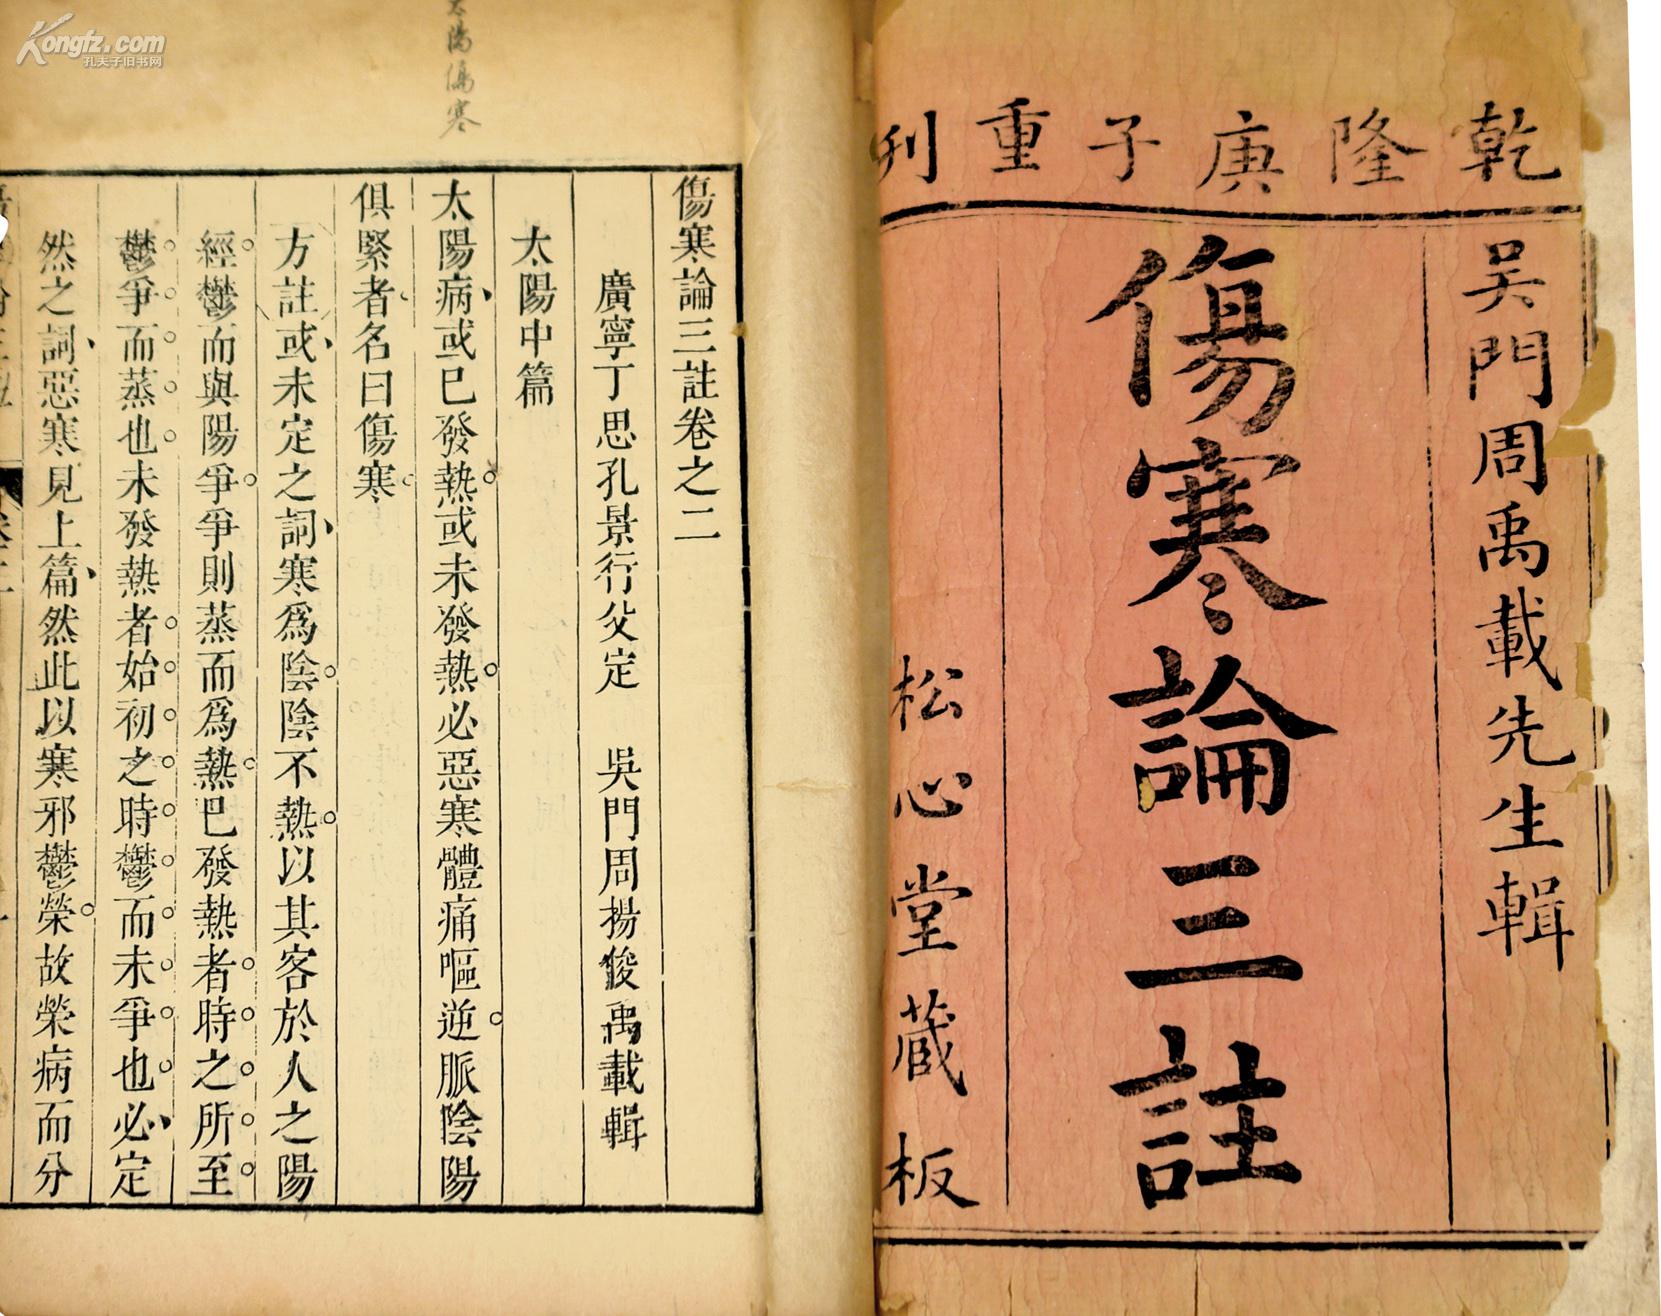 乾隆庚子重刊
吴門周禹載先生輯
傷寒論三註
松心堂藏板
傷寒論三註卷之二
廣寧丁思孔景行父定 吳門周揚俊禹載輯
太陽中篇
太陽病或已發熱或未發熱必惡寒體痛嘔逆脈陰陽
俱緊者名曰傷寒
方註或未定之詞寒爲陰陰不熱以其客於人之陽
經鬱而與陽爭爭則蒸而爲熱已發熱者時之所至
鬱爭而蒸也未發熱者始初之時鬱而未爭也必定
然之詞惡寒見上篇然此以寒邪鬱榮故榮病而分
太陽傷寒
Kongfz.com
孔夫子旧书网